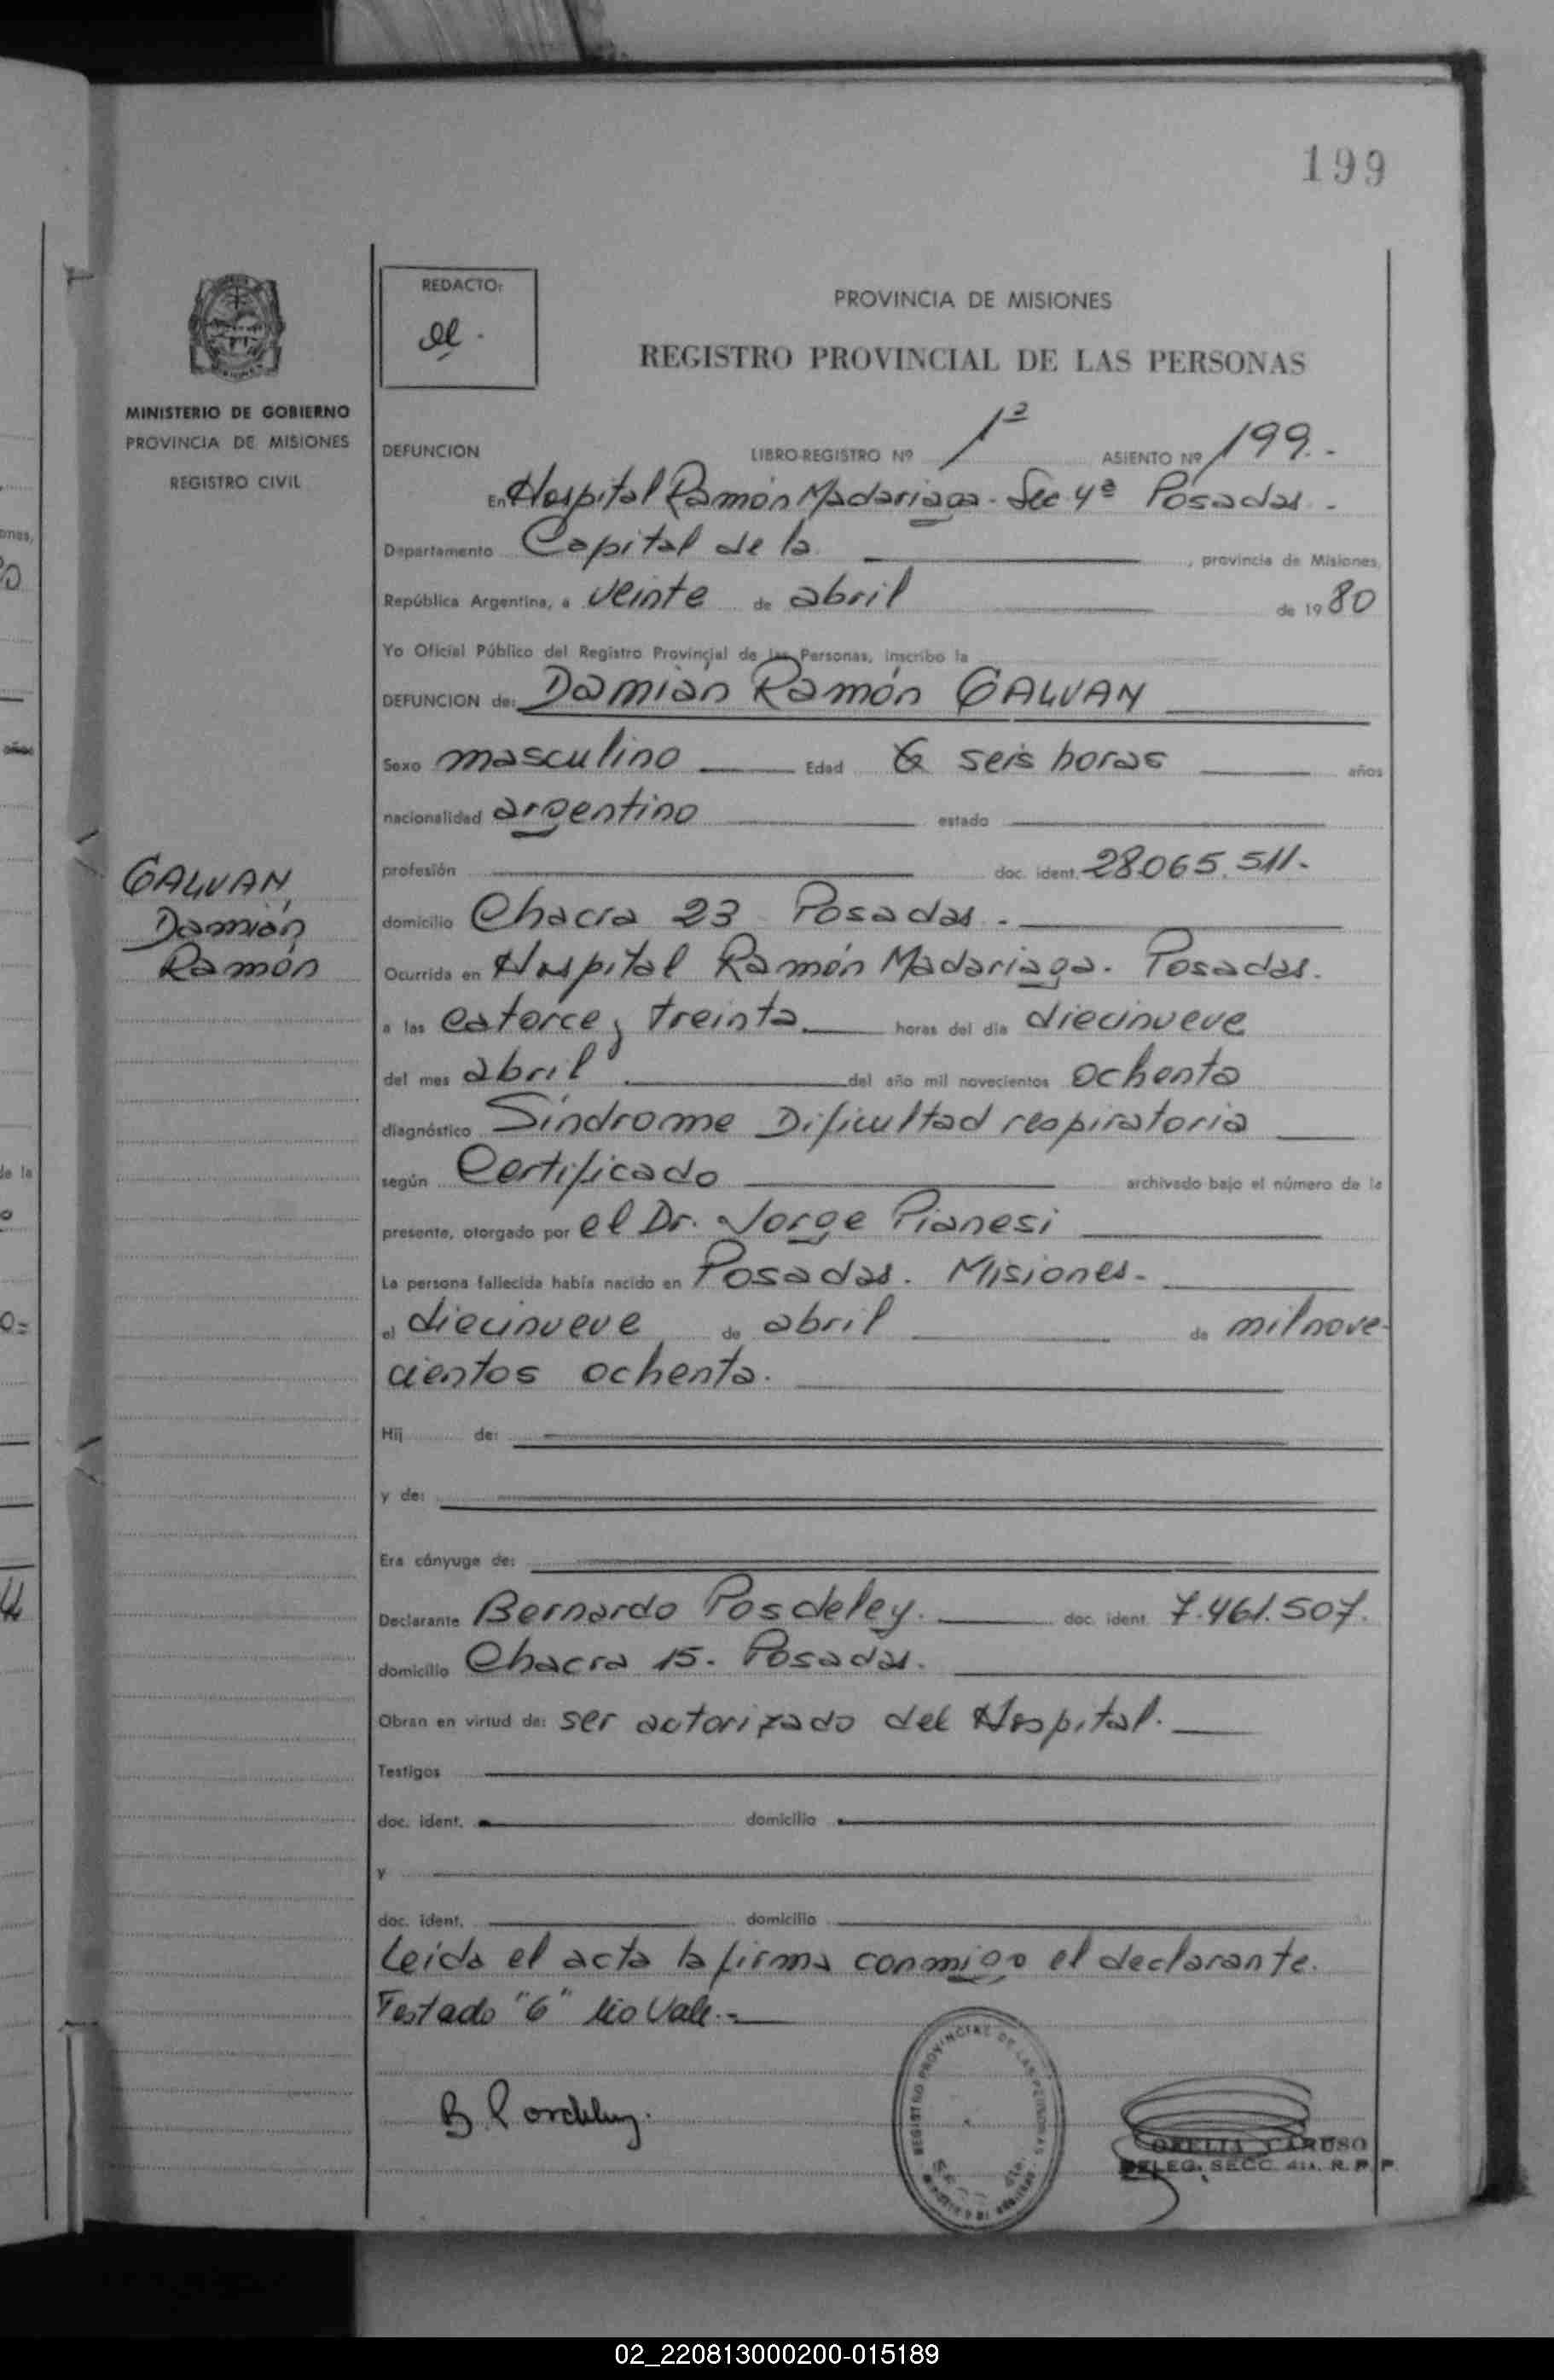 199
REDACTO:
PROVINCIA DE MISIONES
REGISTRO PROVINCIAL DE LAS PERSONAS
MINISTERIO DE GOBIERNO
PROVINCIA DE MISIONES
REGISTRO CIVIL
DEFUNCION LIBRO-REGISTRO Nº 1º ASIENTO Nº 199.-
En Hospital Ramón Madariaga - Sec 4ª Posadas -
Departamento Capital de la , provincia de Misiones,
República Argentina, a veinte de abril de 1980
Yo Oficial Público del Registro Provincial de las Personas, inscribo la
DEFUNCION de: Damián Ramón GALVAN
Sexo masculino Edad 6 seis horas años
nacionalidad argentino estado
GALVAN,
Damián
Ramón
profesión doc. ident. 28.065.511.-
domicilio Chacra 23 Posadas.-
Ocurrida en Hospital Ramón Madariaga. Posadas.
a las catorce y treinta horas del día diecinueve
del mes abril del año mil novecientos ochenta
diagnóstico Síndrome Dificultad respiratoria
según Certificado archivado bajo el número de la
presente, otorgado por el Dr. Jorge Pianesi
La persona fallecida había nacido en Posadas. Misiones.-
el diecinueve de abril de mil nove-
cientos ochenta.
Hij de:
y de:
Era cónyuge de:
Declarante Bernardo Posdeley. doc. ident. 7.461.507.
domicilio Chacra 15. Posadas.
Obran en virtud de: ser autorizado del Hospital.
Testigos
doc. ident. domicilio
y
doc. ident. domicilio
Leída el acta la firma conmigo el declarante.
Testado "6" No Vale.-
REGISTRO PROVINCIAL DE LAS PERSONAS
OFELIA CARUSO
DELEG. SECC. 4ta. R. P. P.
02_220813000200-015189